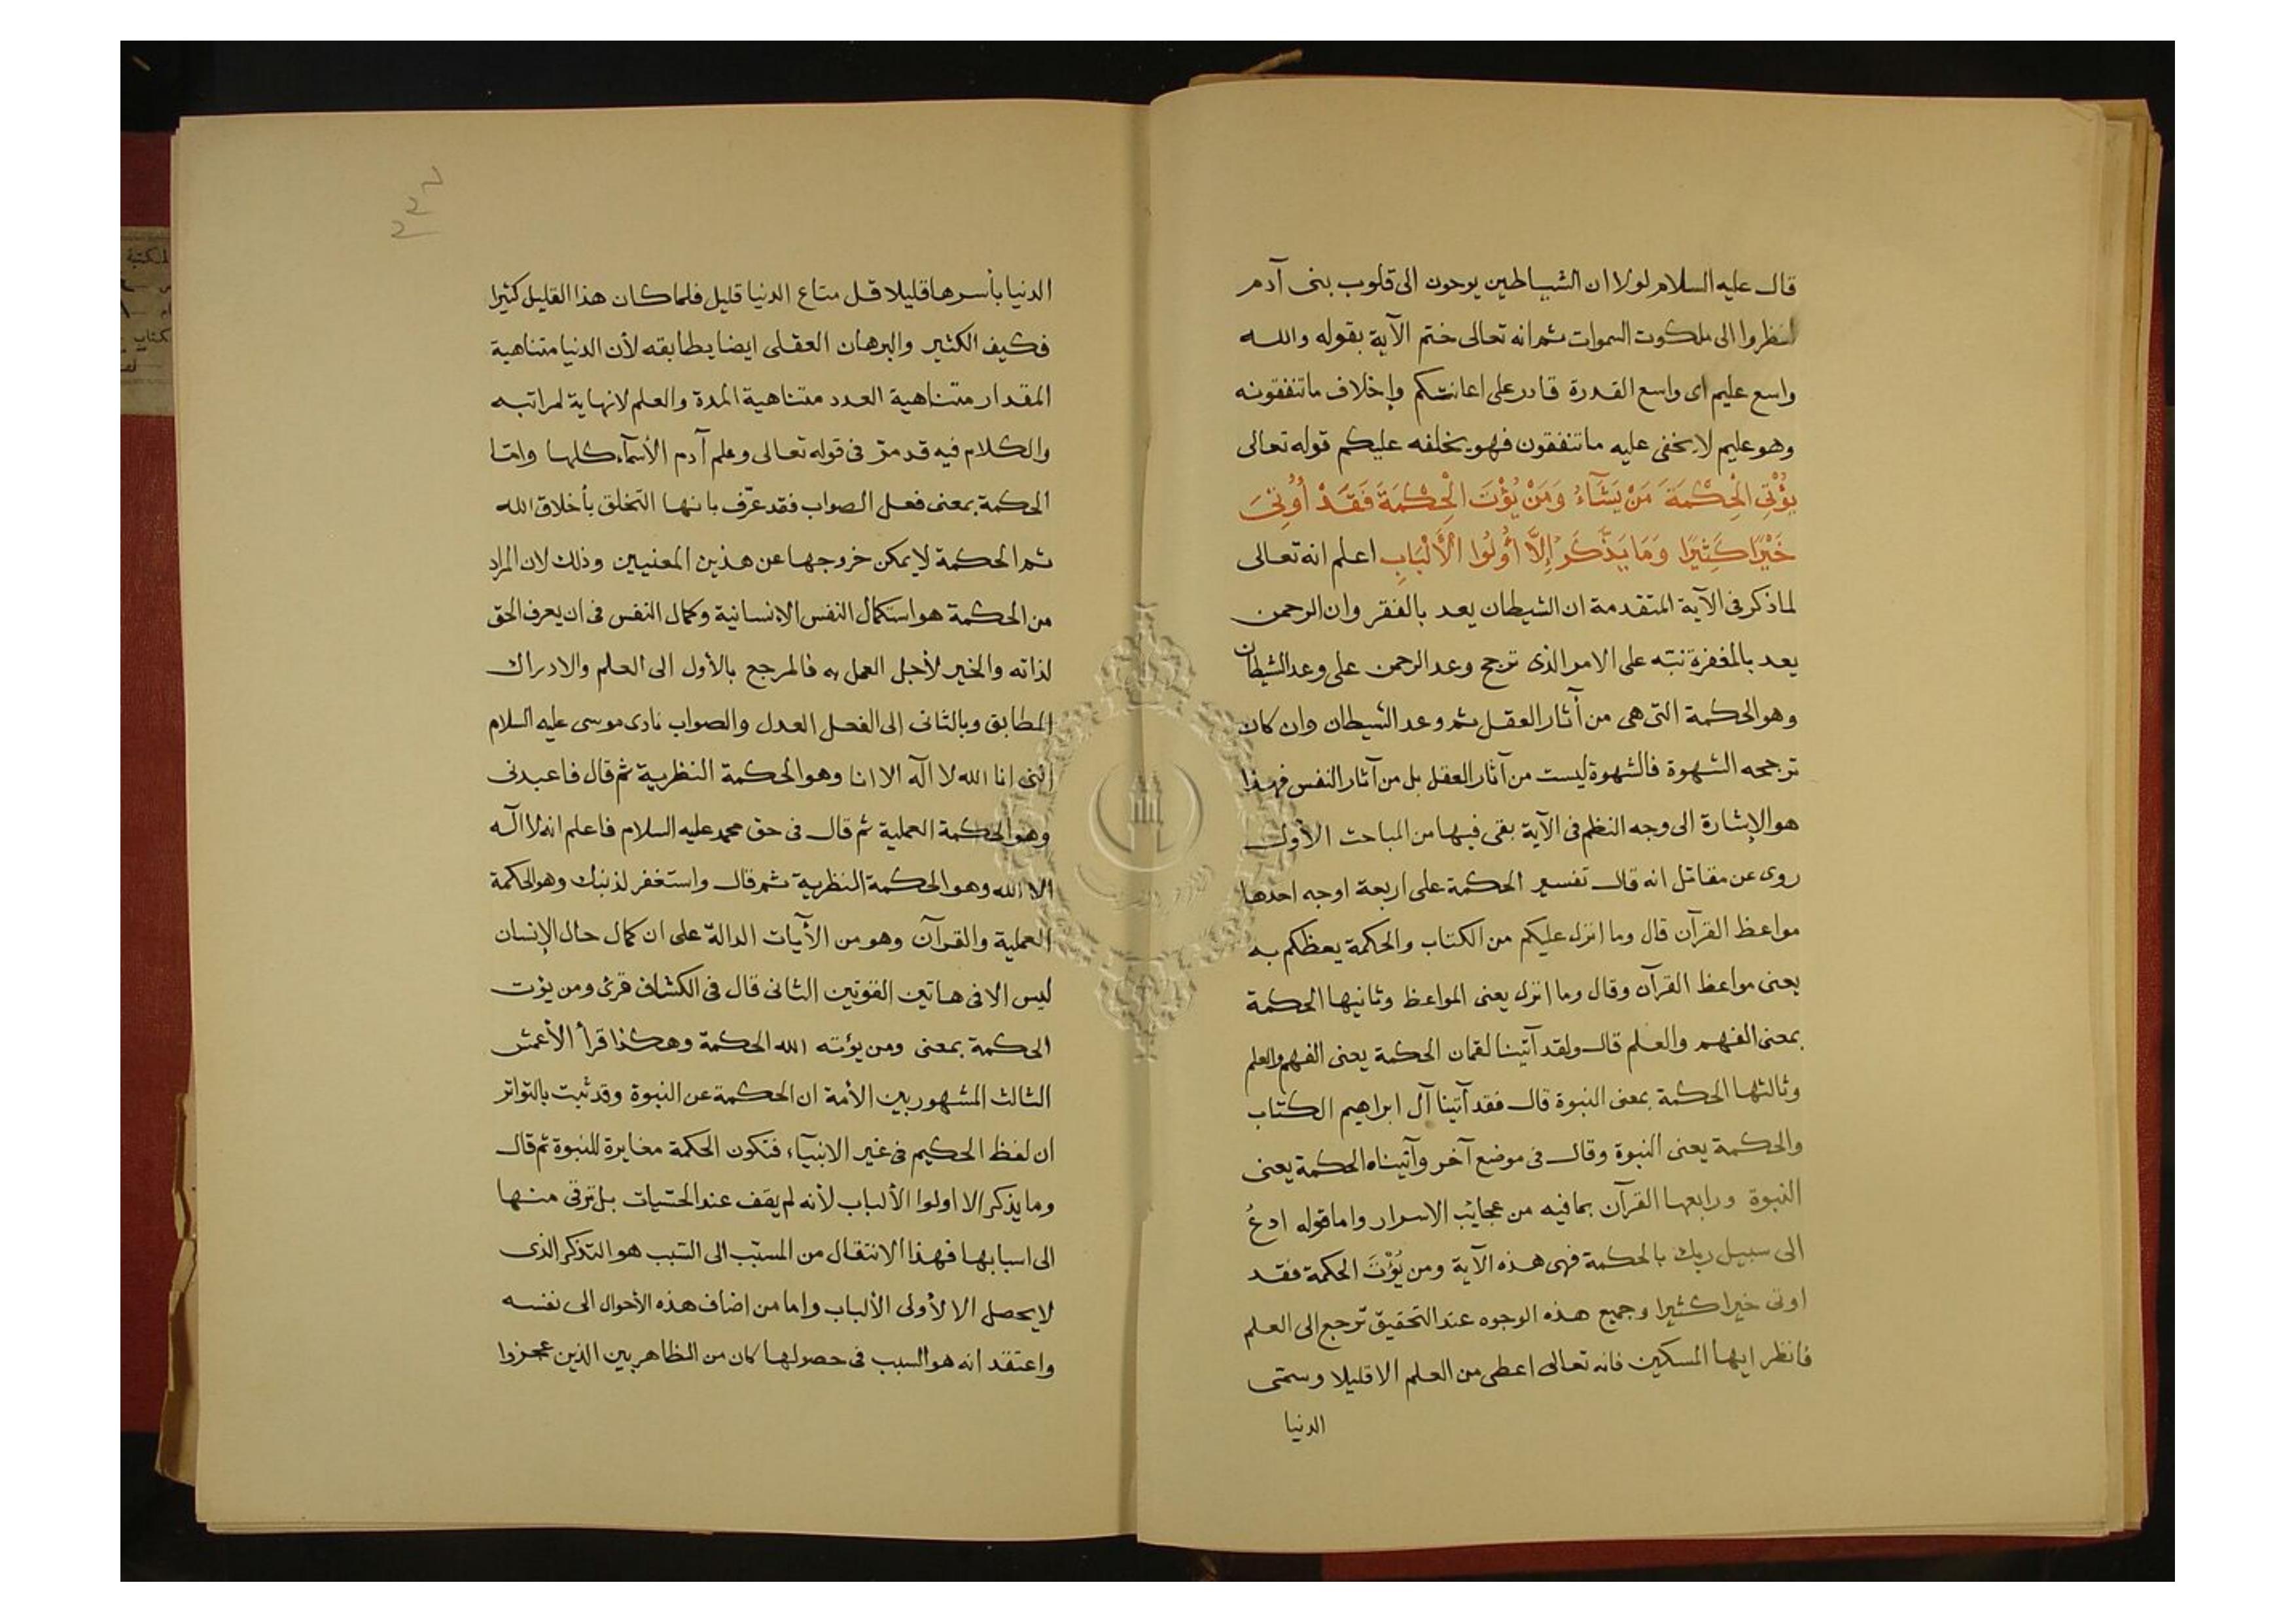 قال عليه السلام لولا ان الشياطين يوحون الى قلوب بنى آدم
لنظروا الى ملكوت السموات ثم انه تعالى ختم الآية بقوله والله
واسع عليم اى واسع القدرة قادر على اعانتكم وإخلاف ما تنفقونه
وهو عليم لا يخفى عليه ما تنفقون فهو يخلفه عليكم قوله تعالى
يُؤْتِى الْحِكْمَةَ مَنْ يَشَآءُ وَمَنْ يُؤْتَ الْحِكْمَةَ فَقَدْ أُوتِىَ
خَيْرًا كَثِيرًا وَمَا يَذَّكَرُ إِلَّا أُولُوا الْأَلْبَابِ اعلم انه تعالى
لما ذكر فى الآية المتقدمة ان الشيطان يعد بالفقر وان الرحمن
يعد بالمغفرة نبّه على الامر الذى ترجح وعد الرحمن على وعد الشيطان
وهو الحكمة التى هى من أثار العقل ثم وعد الشيطان وان كان
ترجحه الشهوة فالشهوة ليست من آثار العقل بل من آثار النفس فهذا
هو الإشارة الى وجه النظم فى الآية بقى فيها من المباحث الأول
روى عن مقاتل انه قال تفسير الحكمة على اربعة اوجه احدها
مواعظ القرآن قال وما انزل عليكم من الكتاب والحكمة يعظكم به
يعنى مواعظ القرآن وقال وما انزل يعنى المواعظ وثانيها الحكمة
بمعنى الفهم والعلم قال ولقد آتينا لقمان الحكمة يعنى الفهم والعلم
وثالثها الحكمة بمعنى النبوة قال فقد آتينا آل ابراهيم الكتاب
والحكمة يعنى النبوة وقال فى موضع آخر وآتيناه الحكمة يعنى
النبوة ورابعها القرآن بما فيه من عجايب الاسرار واما قوله ادعُ
الى سبيل ربك بالحكمة فهى هذه الآية ومن يُؤْتَ الحكمة فقد
اوتى خيرا كثيرا وجميع هذه الوجوه عند التحقيق ترجع الى العلم
فانظر ايها المسكين فانه تعالى اعطى من العلم الا قليلا وسمّى
الدنيا
الدنيا بأسرها قليلا قل متاع الدنيا قليل فلما كان هذا القليل كثيرا
فكيف الكثير والبرهان العقلى ايضا يطابقه لأن الدنيا متناهية
المقدار متناهية العدد متناهية المدة والعلم لا نهاية لمراتبه
والكلام فيه قد مرّ فى قوله تعالى وعلم آدم الأسمآء كلها وامّا
الحكمة بمعنى فعل الصواب فقد عرّف بانها التخلق بأخلاق الله
ثم الحكمة لا يمكن خروجها عن هذين المعنيين وذلك لان المراد
من الحكمة هو استكمال النفس الإنسانية وكمال النفس فى ان يعرف الحق
لذاته والخير لأجل العمل به فالمرجع بالأول الى العلم والادراك
المطابق وبالثانى الى الفعل العدل والصواب نادى موسى عليه السلام
اننى انا الله لا اله الا انا وهو الحكمة النظرية ثم قال فاعبدنى
وهو الحكمة العملية ثم قال فى حق محمد عليه السلام فاعلم انه لا اله
الا الله وهو الحكمة النظرية ثم قال واستغفر لذنبك وهو الحكمة
العملية والقرآن وهو من الأيات الدالة على ان كمال حال الإنسان
ليس الا فى هاتين القوتين الثانى قال فى الكشاف قرئ ومن يؤت
الحكمة بمعنى ومن يؤته الله الحكمة وهكذا قرأ الأعمش
الثالث المشهور بين الأمة ان الحكمة عن النبوة وقد ثبت بالتواتر
ان لفظ الحكيم فى غير الانبيآء فتكون الحكمة مغايرة للنبوة ثم قال
وما يذكر الا اولوا الألباب لأنه لم يقف عند الحسّيات بل ترقى منها
الى اسبابها فهذا الانتقال من المسبّب الى السّبب هو التذكر الذى
لا يحصل الا لأولى الألباب واما من اضاف هذه الأحوال الى نفسه
واعتقد انه هو السبب فى حصولها كان من الظاهريين الذين عجزوا